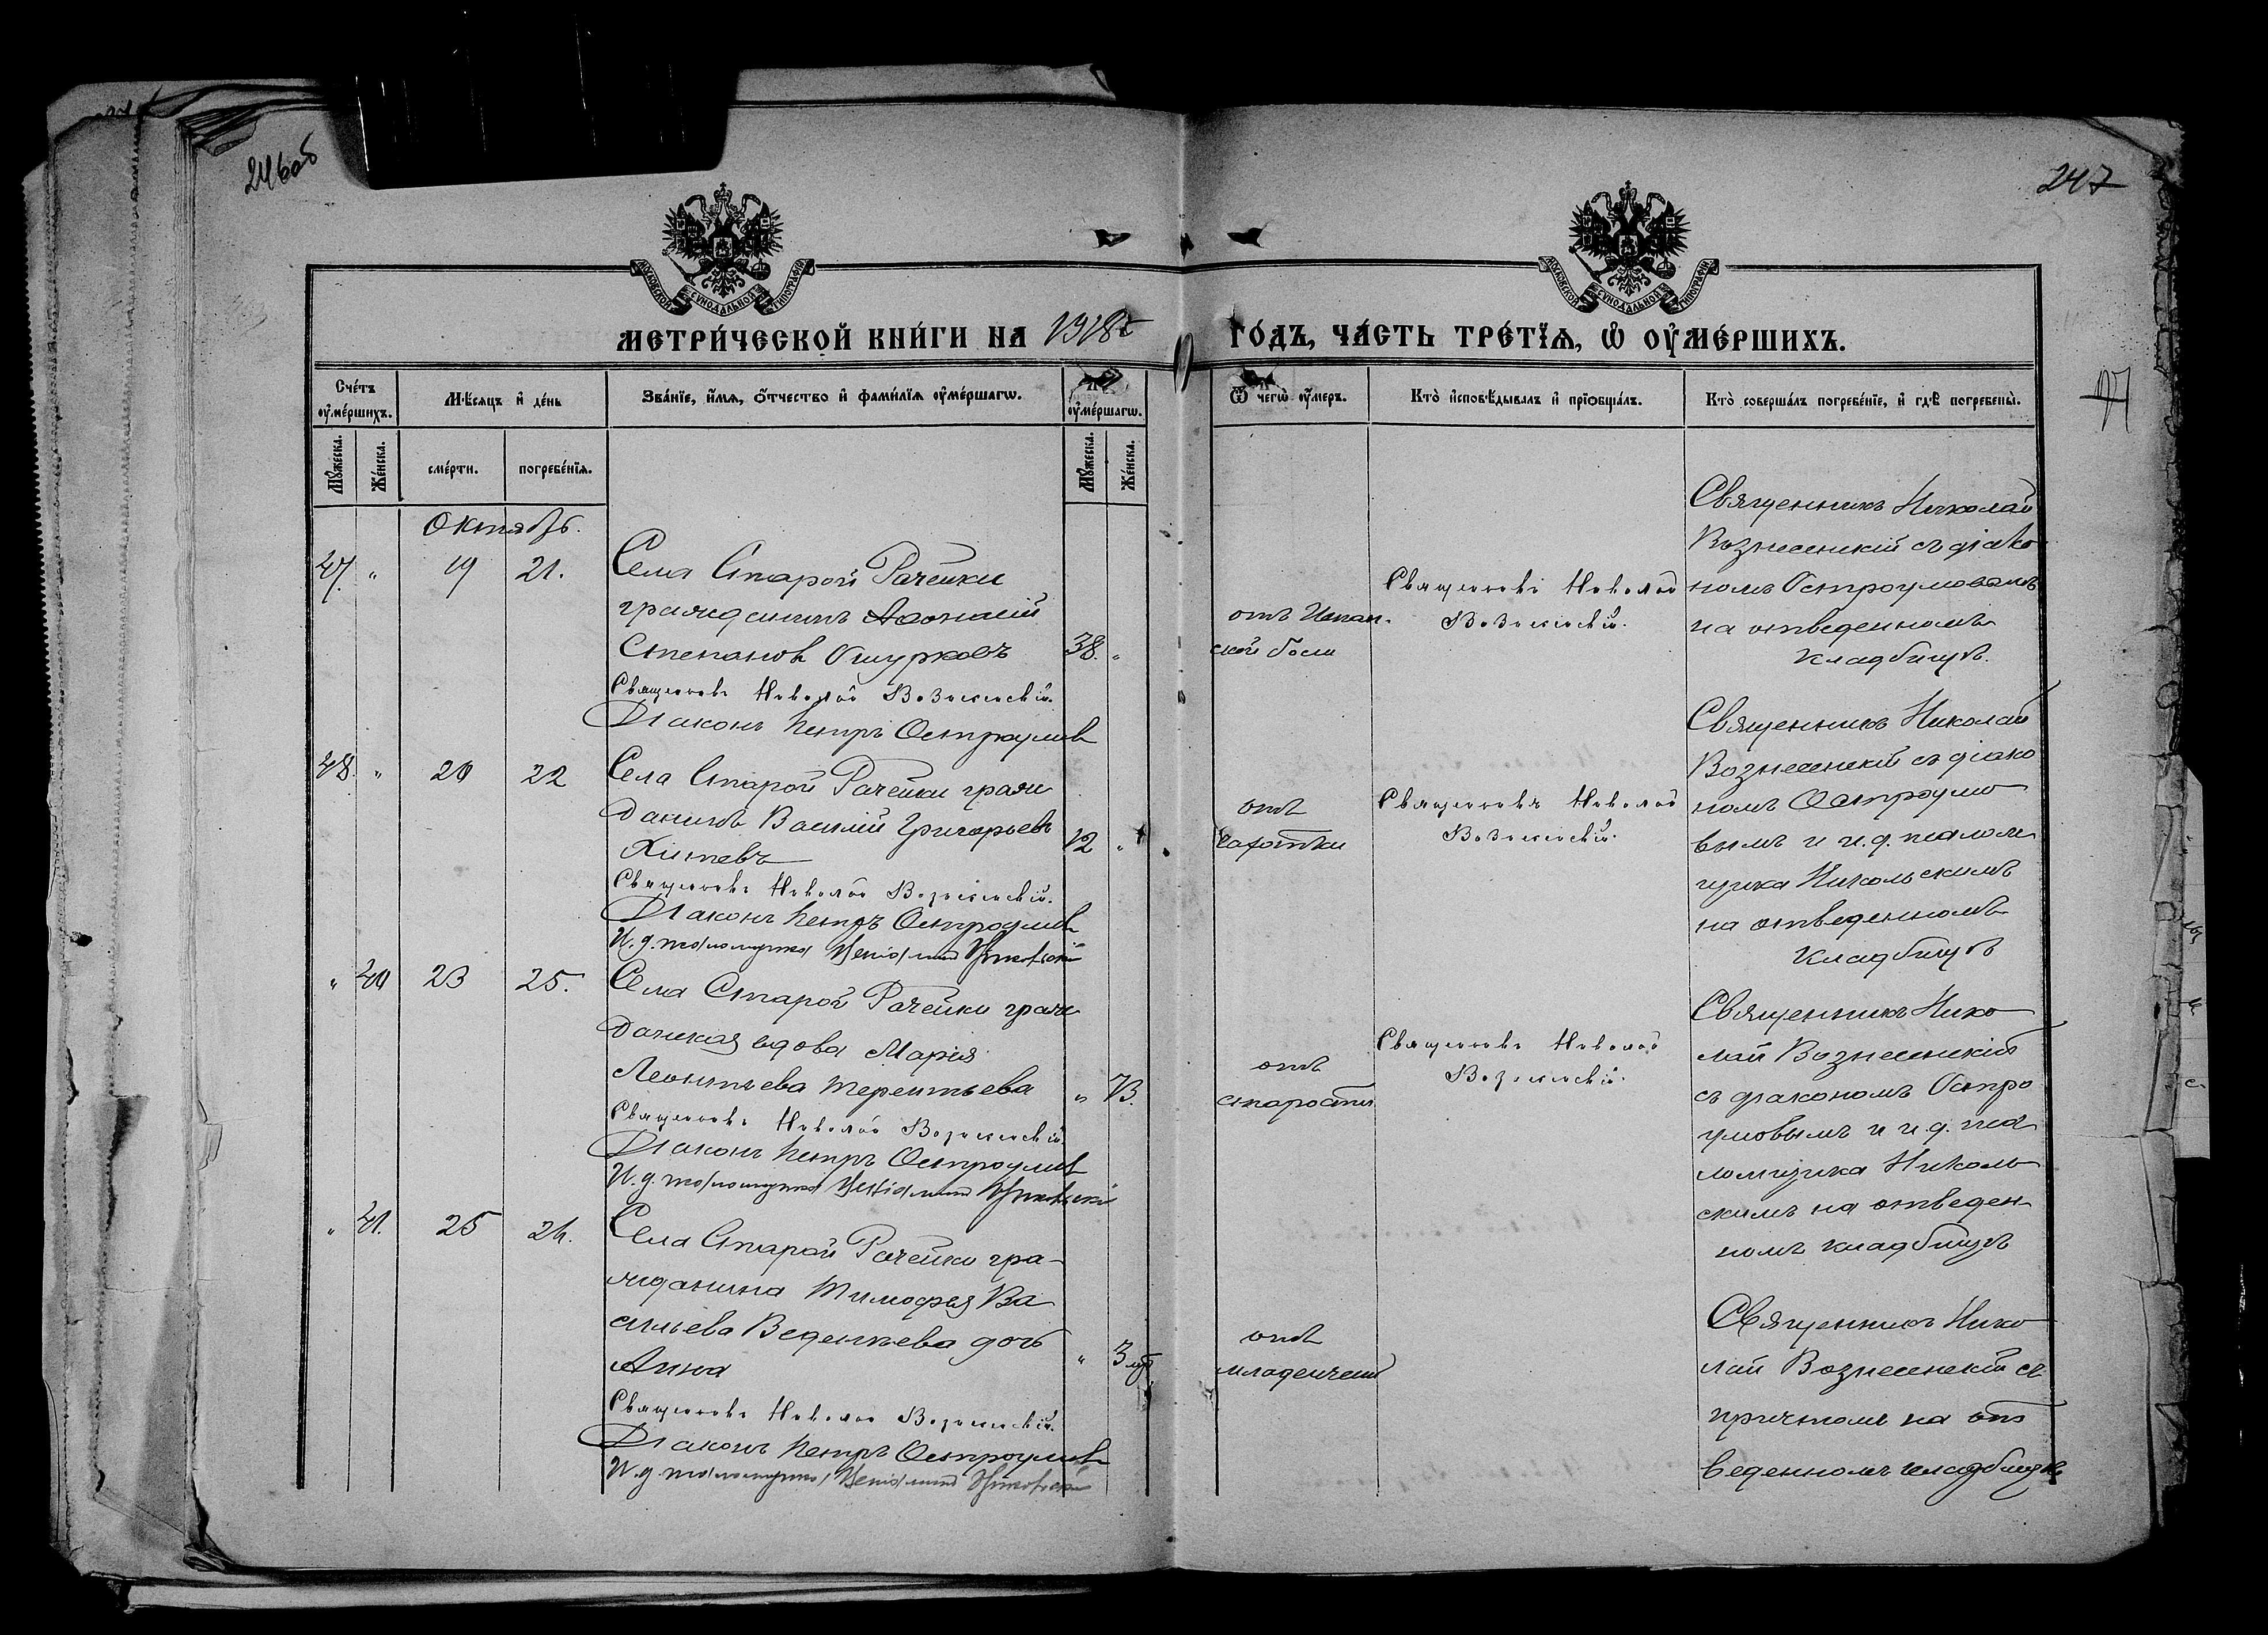 246об
247
МОСКОВСКОЙ СѴНОДАЛЬНОЙ ТИПОГРАФІИ
МОСКОВСКОЙ СѴНОДАЛЬНОЙ ТИПОГРАФІИ
МЕТРИ́ЧЕСКОЙ КНИ́ГИ НА 1918 г
ГО́ДЪ, ЧА́СТЬ ТРЕ́ТЇѦ, Ѡ҆ ОУ҆МЕ́РШИХЪ.
Сче́тъ оу҆ме́ршихъ.
Мѣ́сѧцъ и҆ де́нь
Зва́нїе, и҆́мѧ, ѻ҆́тчество и҆ фами́лїѧ оу҆ме́ршагѡ.
оу҆ме́ршагѡ.
Ѿ чегѡ̀ оу҆́меръ.
Кто̀ и҆сповѣ́дывалъ и҆ прїѻбща́лъ.
Кто̀ соверша́лъ погребе́нїе, и҆ гдѣ̀ погребены̀.
Мꙋ́жеска.
Же́нска.
сме́рти.
погребе́нїѧ.
Мꙋ́жеска.
Же́нска.
Октябрь.
47. " 19 21.
Села Старой Рачейки
гражданинъ Афонасій
Степановъ Ошурковъ
38. "
Священникъ Николай Вознесенскій.
Діаконъ Петръ Остроумовъ
отъ Испан-
ской болѣ
Священникъ Николай
Вознесенскій.
Священникъ Николай
Вознесенскій съ діако
номъ Остроумовымъ
на отведенномъ
кладбищѣ.
48. " 20 22
Села Старой Рачейки граж
данинъ Василій Григорьевъ
12 "
Священникъ Николай Вознесенскій.
Діаконъ Петръ Остроумовъ
И. д. псаломщика Никольскій
отъ
чахотки
Священникъ Николай
Вознесенскій.
Священникъ Николай
Вознесенскій съ діако
номъ Остроумо
вымъ и и. д. псалом
щика Никольскимъ
на отведенномъ
кладбищѣ
" 40 23 25.
Села Старой Рачейки граж
данская вдова Марія
Леонтьева Терентьева
" 73.
Священникъ Николай Вознесенскій.
Діаконъ Петръ Остроумовъ
И. д. псаломщика Никольскій
отъ
старости
Священникъ Николай
Вознесенскій.
Священникъ Нико
лай Вознесенскій
съ діакономъ Остро
умовымъ и и. д. пса
ломщика Николь
скимъ на отведен
номъ кладбищѣ
" 41. 25 26.
Села Старой Рачейки гра-
жданина Тимофея Ва
сильева Веденеева дочь
Анна
"
Священникъ Николай Вознесенскій.
Діаконъ Петръ Остроумовъ
И. д. псаломщика Никольскій
отъ
младенческ
Священникъ Нико
лай Вознесенскій съ
причтомъ на от
веденномъ кладбищѣ